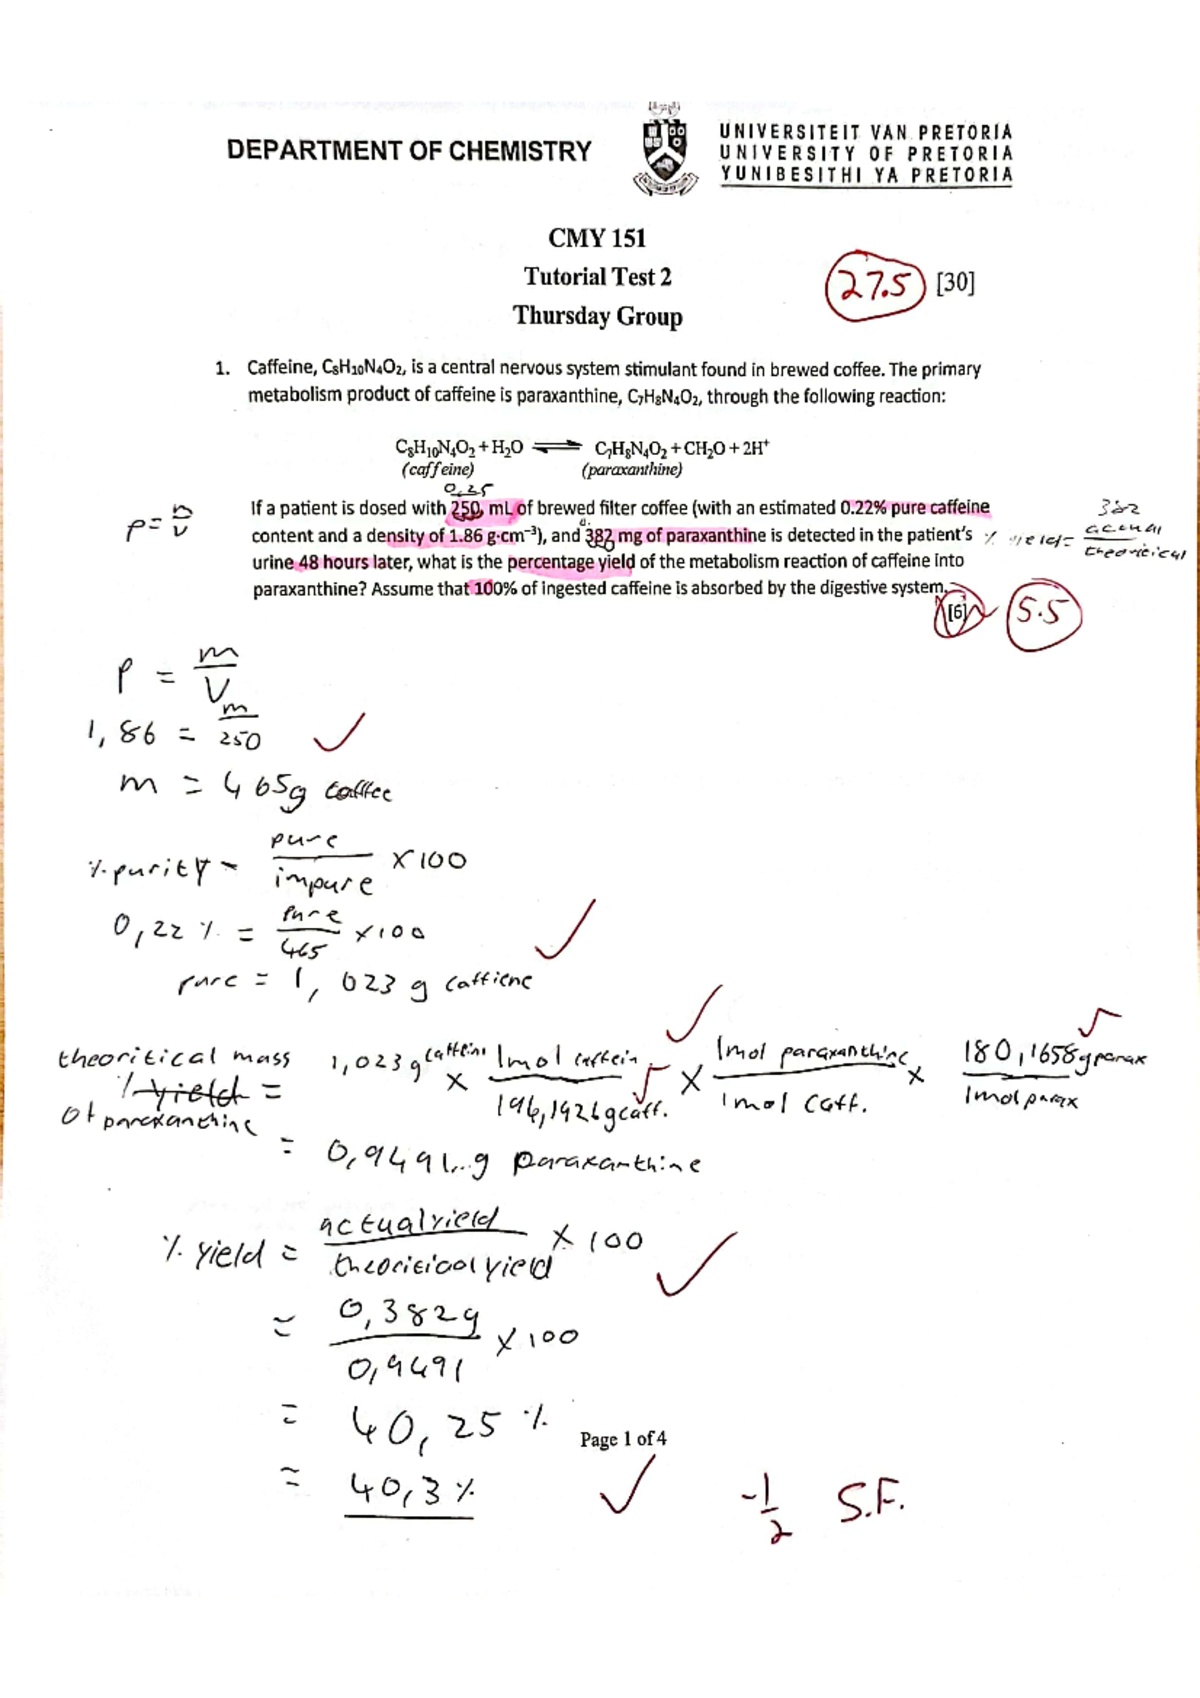 DEPARTMENT OF CHEMISTRY
UNIVERSITEIT VAN PRETORIA
UNIVERSITY OF PRETORIA
YUNIBESITHI YA PRETORIA
CMY 151
Tutorial Test 2
Thursday Group
27.5 [30]
1. Caffeine, C₈H₁₀N₄O₂, is a central nervous system stimulant found in brewed coffee. The primary
metabolism product of caffeine is paraxanthine, C₇H₈N₄O₂, through the following reaction:
C₈H₁₀N₄O₂ + H₂O ⇌ C₇H₈N₄O₂ + CH₂O + 2H⁺
(caffeine) (paraxanthine)
0.25
If a patient is dosed with 250 mL of brewed filter coffee (with an estimated 0.22% pure caffeine
content and a density of 1.86 g·cm⁻³), and 382 mg of paraxanthine is detected in the patient's
urine 48 hours later, what is the percentage yield of the metabolism reaction of caffeine into
paraxanthine? Assume that 100% of ingested caffeine is absorbed by the digestive system.
[6] 5.5
ρ = n/v
382
% yield = actual/theoriticial
ρ = m/V
1,86 = m/250
m = 465g coffee
% purity = pure/impure × 100
0,22 % = pure/465 × 100
pure = 1,023 g caffiene
theoritical mass 1,023 g caffiene × 1mol caffein/194,1926 g caff. × 1mol paraxanthine/1mol caff. × 180,1658 g parax/1mol parax
% yield =
of paraxanthine
= 0,9491... g paraxanthine
% yield = actual yield/theoriticial yield × 100
= 0,382g/0,9491 × 100
= 40,25 %
= 40,3 %
Page 1 of 4
-1/2 S.F.